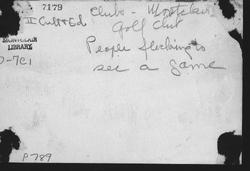 7179
II Cult & Ed
Clubs - Montclair
Golf Club
MONTCLAIR
LIBRARY
People flocking to
see a game
P789